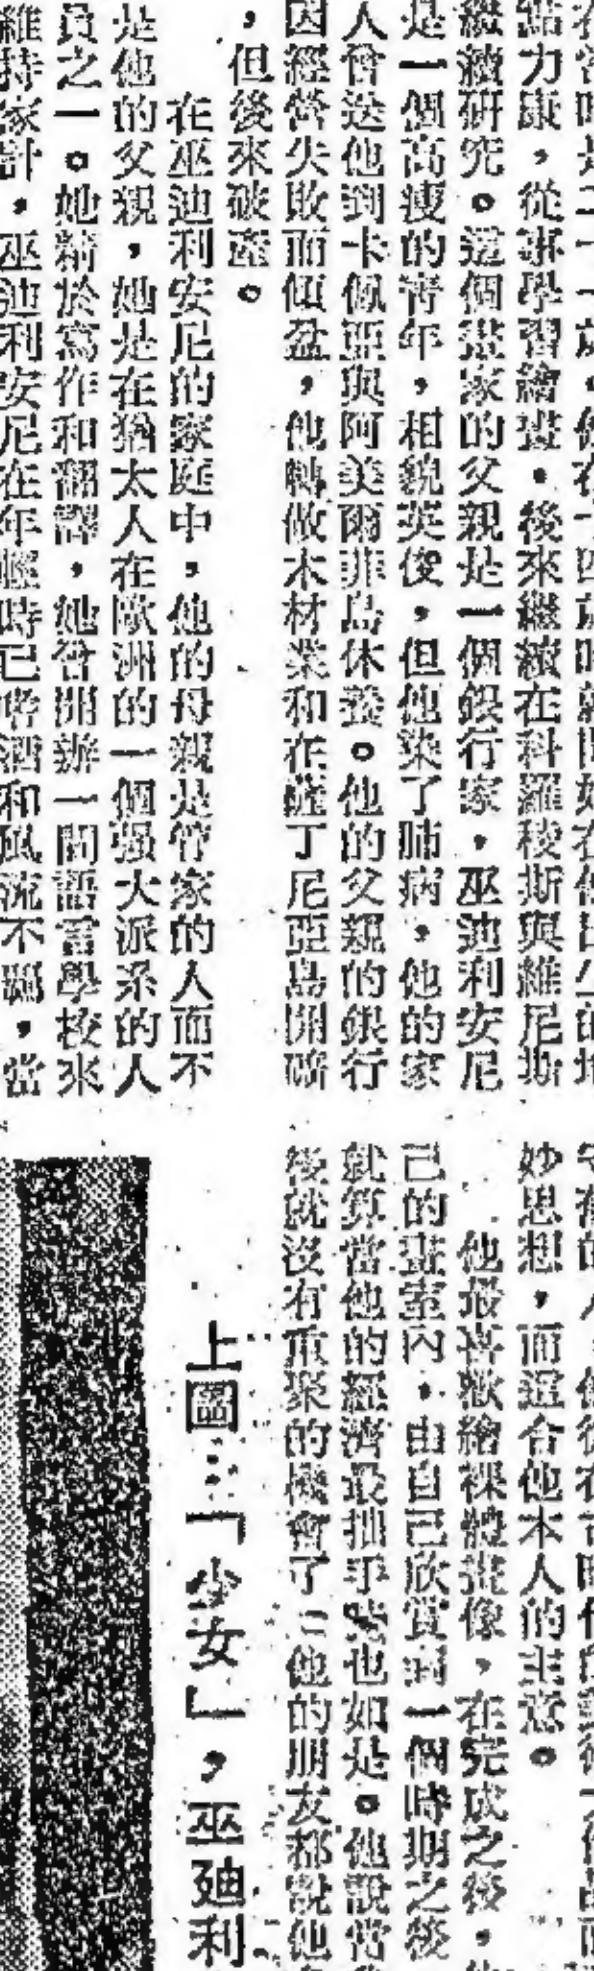 點力康，從事學習繪畫。後來繼續在科羅稜斯與維尼斯
繼續研究。這個畫家的父親是一個銀行家，巫迪利安尼
是一個高瘦的靑年，相貌英俊，但他染了肺病，他的家
人曾送他到卡佩亞與阿美爾菲島休養。他的父親的銀行
因經營失敗而傾盆，他轉做木材業和在薩丁尼亞島開礦
，但後來破產。
在巫迪利安尼的家庭中，他的母親是管家的人而不
是他的父親，她是在猶太人在歐洲的一個强大派系的人
員之一。她精於寫作和翻譯，她曾開辦一間語言學校來
維持家計，巫迪利安尼在年輕時已嗜酒和風流不羈，當
妙思想，而適合他本人的主意。
他最喜歡繪裸體畫像，在完成之後，
己的畫室內，由自己欣賞到一個時期之後
就算當他的經濟最拙乎時也如是。他說當
後就沒有重聚的機會了。他的朋友都說他
上圖：「少女」，巫廸利